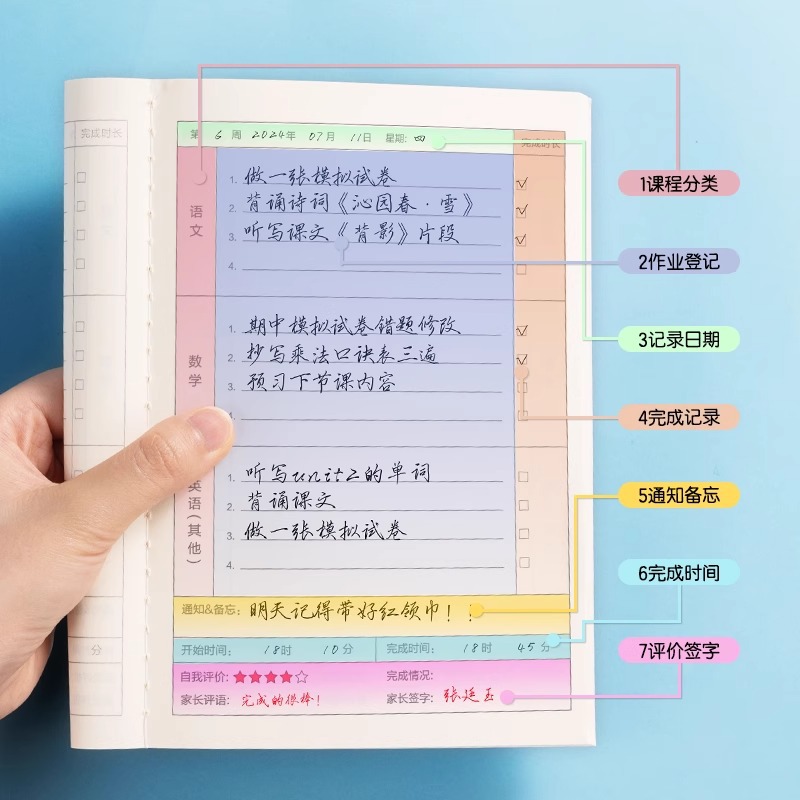 完成时长
第 6 周 2024年 07月 11日 星期: 四
完成时长
语文
1. 做一张模拟试卷
2. 背诵诗词《沁园春·雪》
3. 听写课文《背影》片段
4.
数学
1. 期中模拟试卷错题修改
2. 抄写乘法口诀表三遍
3. 预习下节课内容
4.
英语(其他)
1. 听写unit2的单词
2. 背诵课文
3. 做一张模拟试卷
4.
通知&备忘: 明天记得带好红领巾！！
分
开始时间: 18时 10分 完成时间: 18时 45分
自我评价: ★★★★☆ 完成情况:
家长评语: 完成的很棒！ 家长签字: 张廷玉
1课程分类
2作业登记
3记录日期
4完成记录
5通知备忘
6完成时间
7评价签字